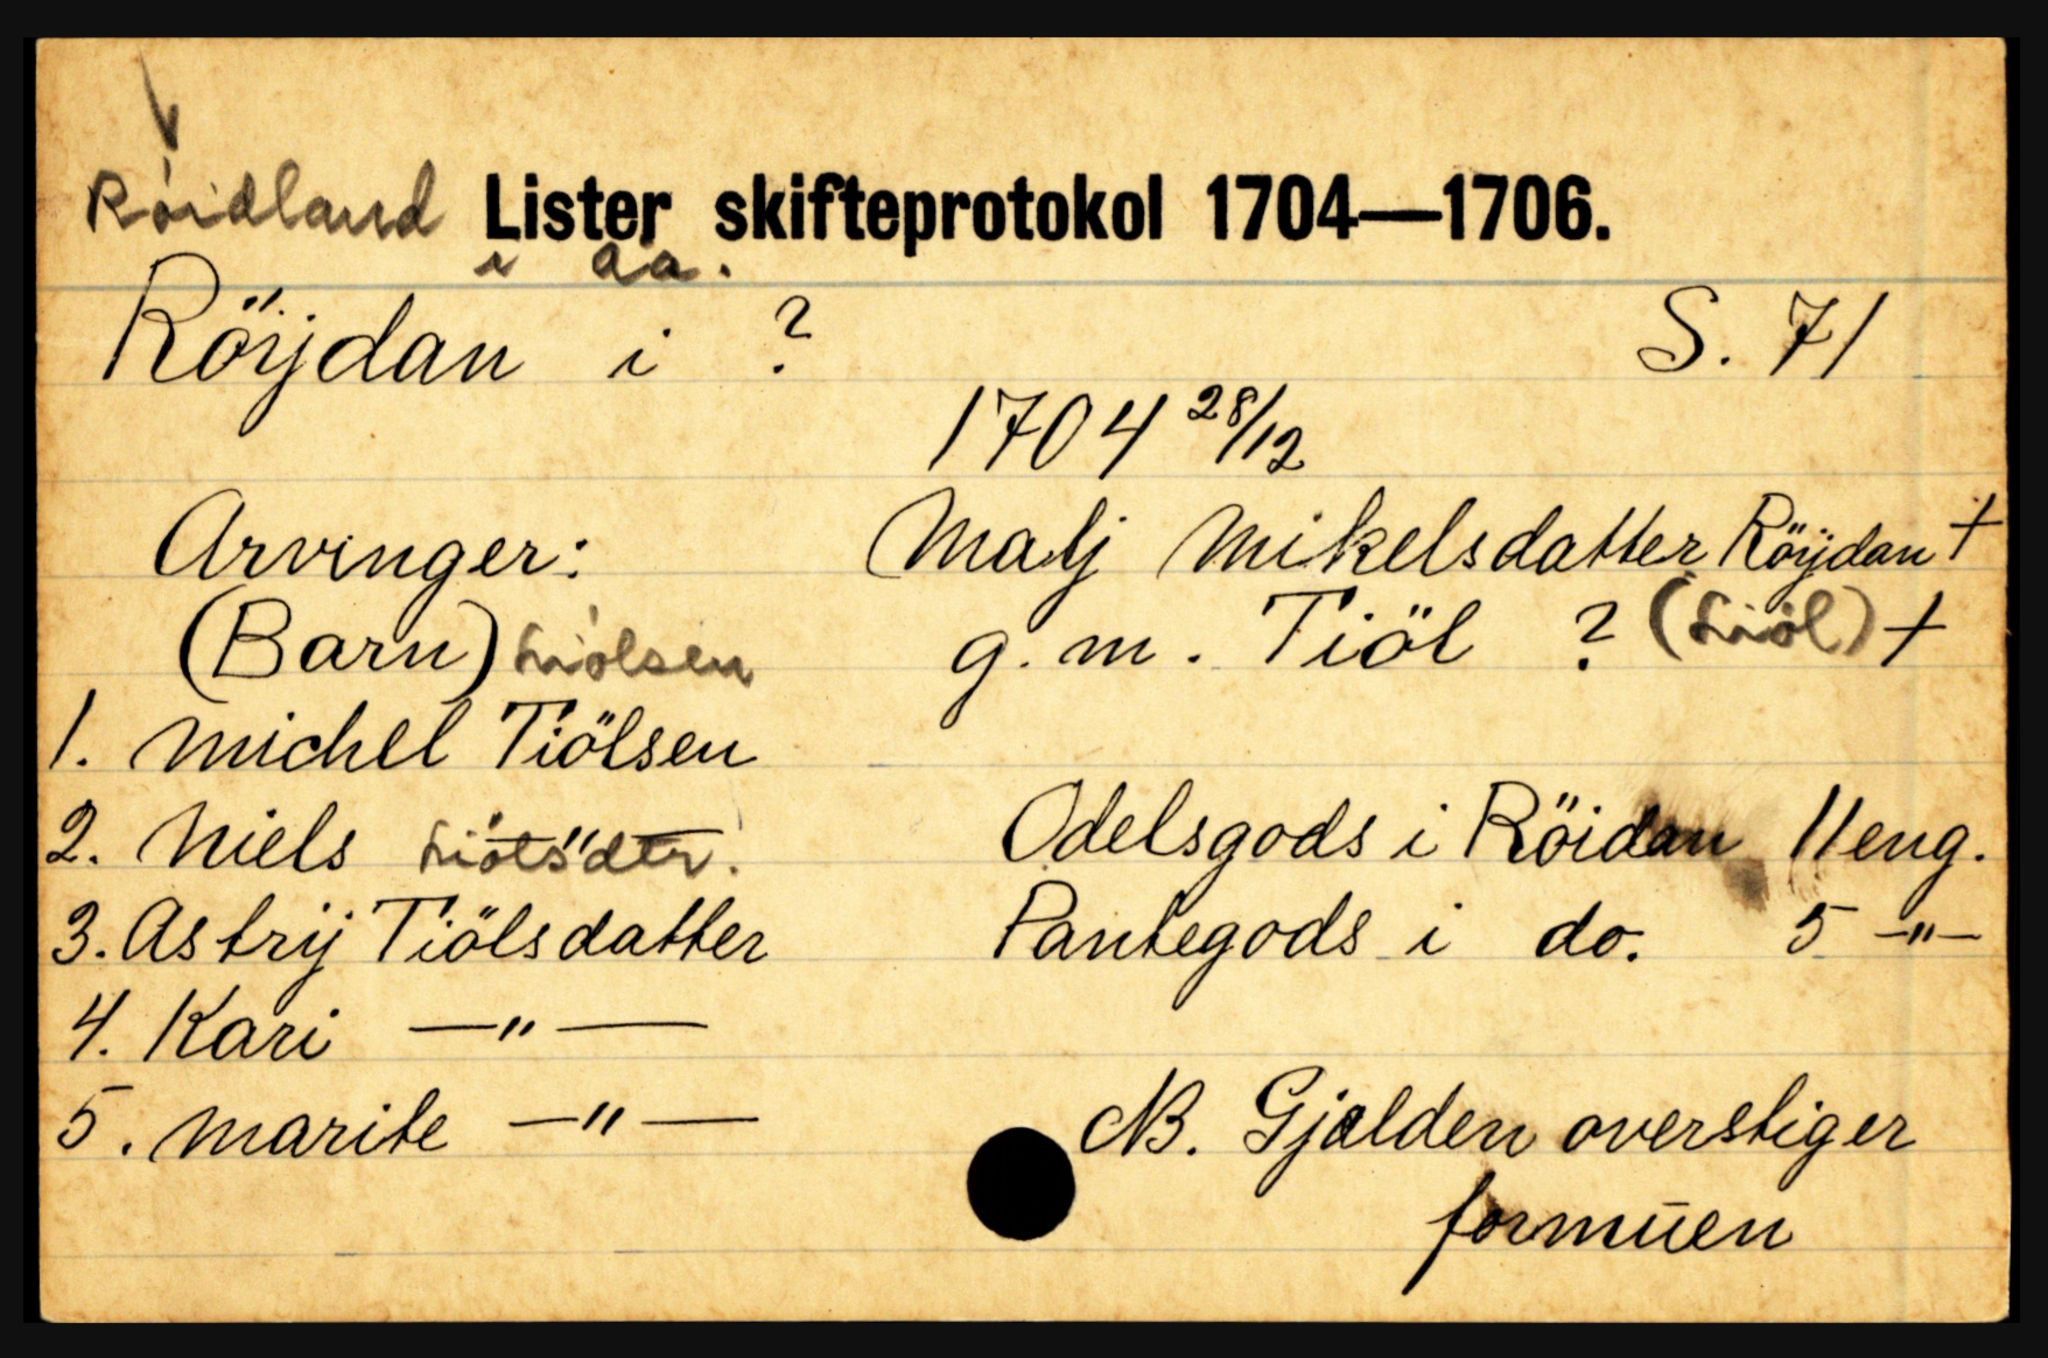 Röidland Lister skifteprotokol 1704—1706.
i Aa.
Röijdan i ? S. 71
1704 28/12
Arvinger: Malj Mikelsdatter Röijdan +
(Barn) Liölsen g. m. Tiöl ? (Liöl) +
1. Michel Tiölsen
2. Niels Liölsdtr. Odelsgods i Röidan 11 eng.
3. Astrij Tiölsdatter Pantegods i do. 5 —"—
4. Kari —"—
5. Marite —"— NB. Gjælden overstiger
formuen